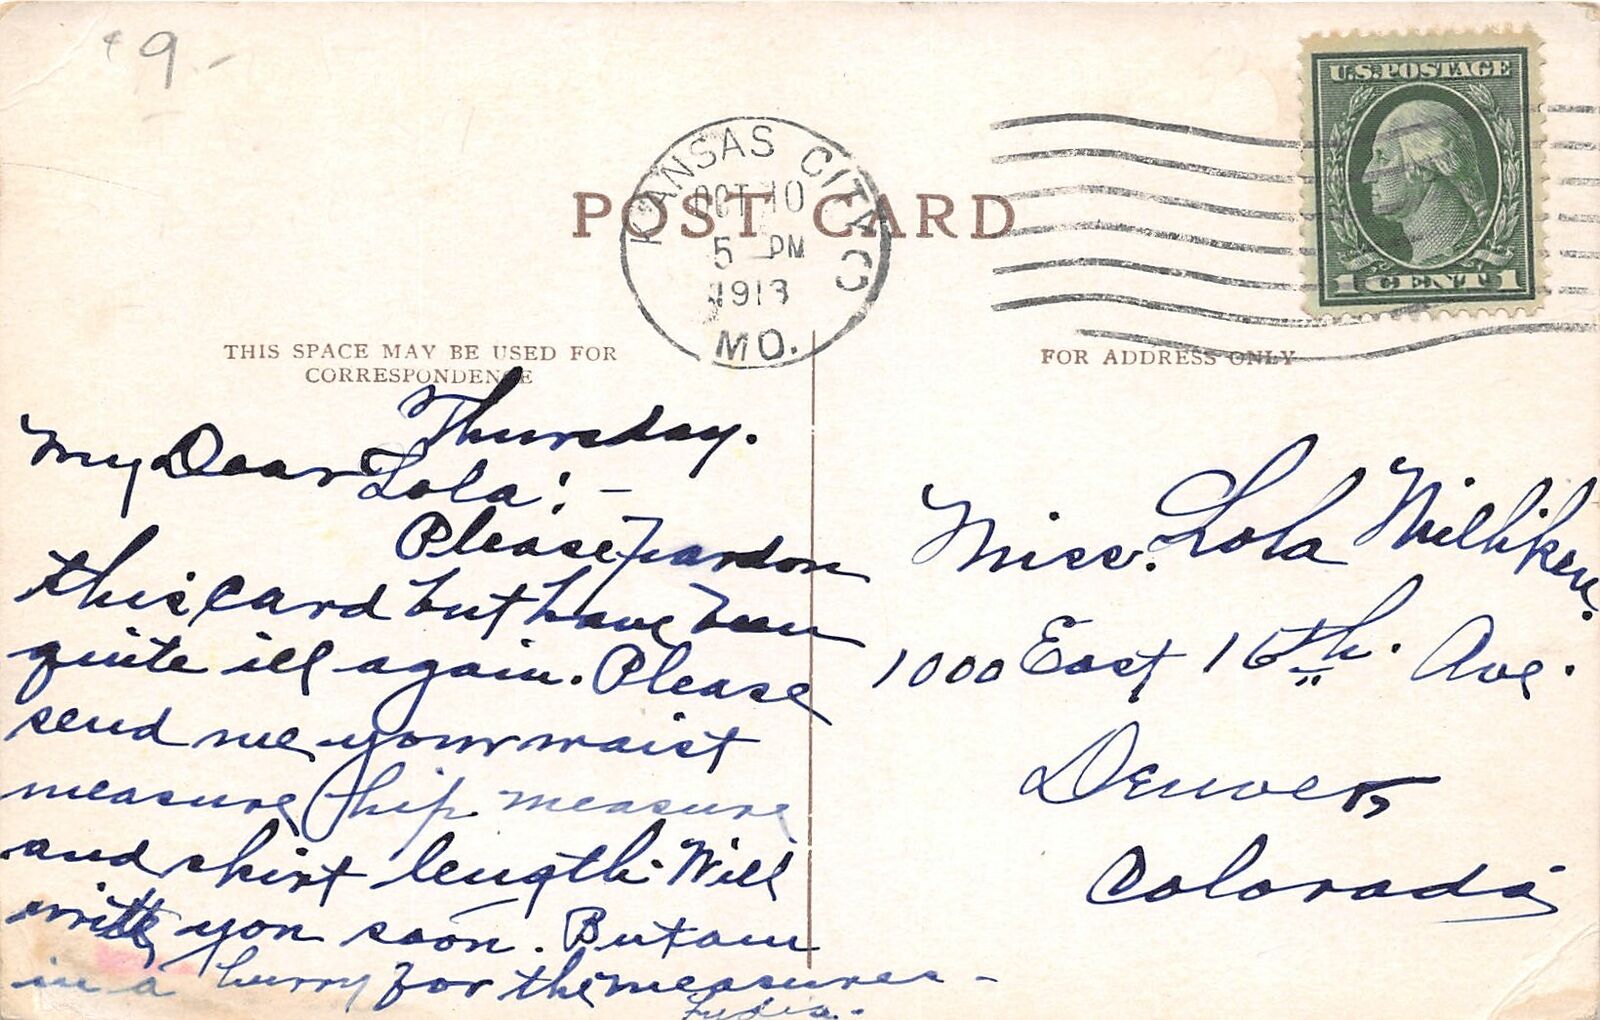 9-
U.S. POSTAGE
1 CENT 1
KANSAS CITY
OCT 10
5 PM
1913
MO.
POST CARD
THIS SPACE MAY BE USED FOR
CORRESPONDENCE
FOR ADDRESS ONLY
Thursday.
My Dear Lola! -
Please pardon
this card but have been
quite ill again. Please
send me your waist
measure, hip measure
and skirt length. Will
write you soon. But am
in a hurry for the measures -
Lydia.
Miss. Lola Milliken.
1000 East 16th. Ave.
Denver,
Colorado